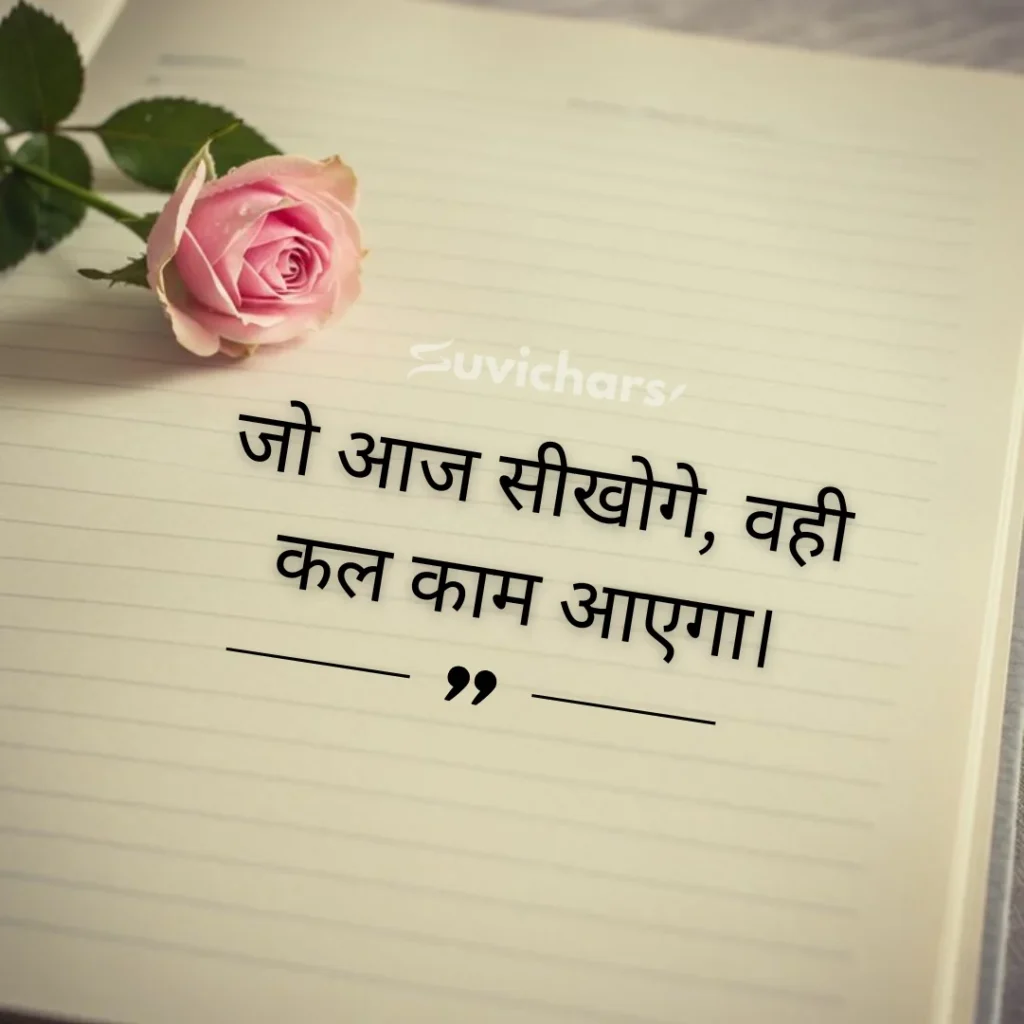 Suvichars
जो आज सीखोगे, वही
कल काम आएगा।
”